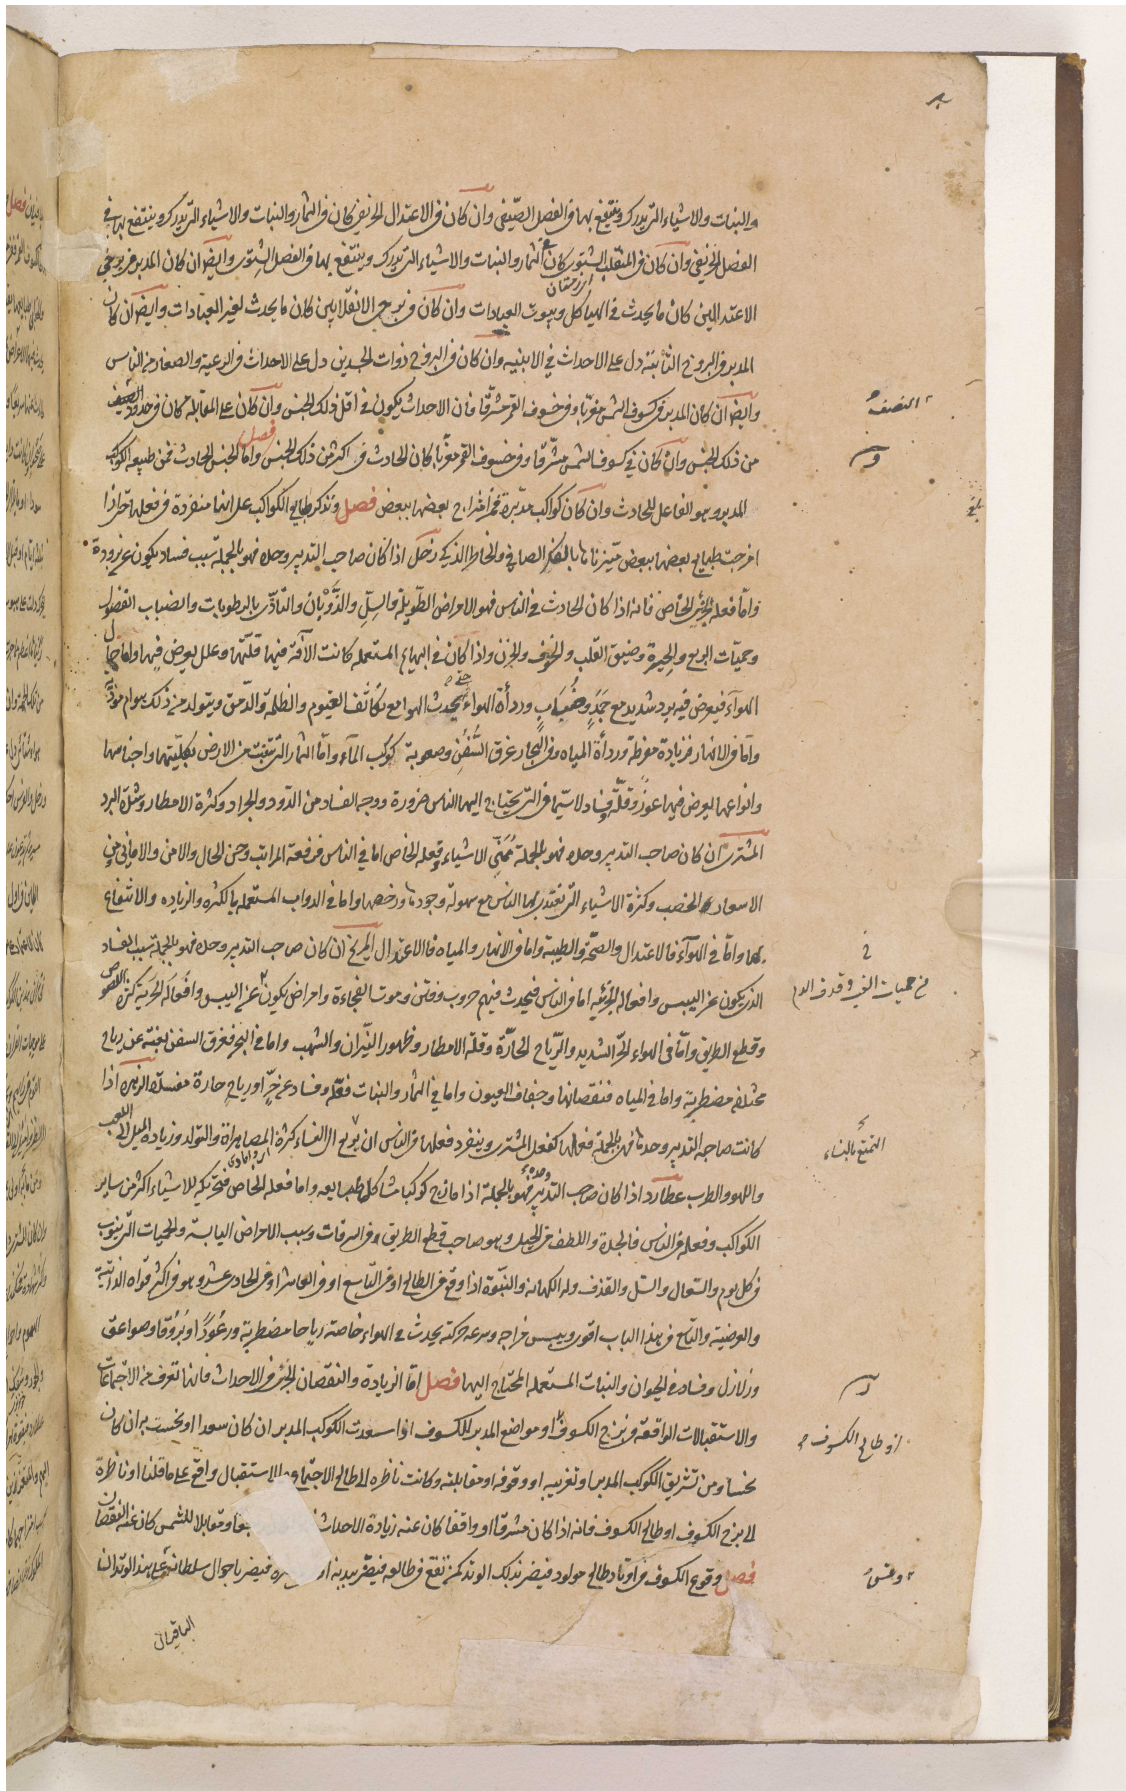 والنبات والاشياء التى تدرك وينتفع بها فى الفصل الصيفى وان كان فى الاعتدال الخريفى كان فى الثمار والنبات والاشياء التى تدرك وينتفع بها فى
الفصل الخريفى وان كان فى المنقلب الشتوى كان فى الثمار والنبات والاشياء التى تدرك وينتفع بها فى الفصل الشتوى وايضا ان كان المدبر فى برجى
الاعتدالين كان ما يحدث فى الهياكل وبيوت العبادات وان كان فى برجى الانقلابين كان ما يحدث لغير العبادات وايضا ان كان
المدبر فى البروج الثابتة دل على الاحداث فى الابنيه وان كان فى البروج ذوات الجسدين دل على الاحداث فى الرعية والصغار من الناس
وايضا ان كان المدبر فى كسوف الشمس مغربا وفى خسوف القمر مشرقا فان الاحداث يكون فى اقل ذلك الجنس وان كان على المقابلة كان فى حدود
النصف
من ذلك الجنس وان كان فى كسوف الشمس مشرقا وفى خسوف القمر مغربا كان الحادث فى اكثر من ذلك الجنس فصل واما الجنس الحادث فمن طبيعه الكوكب
المدبر وهو الفاعل للحادث وان كان كواكب مدبرة فمن امتزاج بعضها ببعض فصل ونذكر طبايع الكواكب على انها منفردة فى فعلها حتى اذا
امتزجت طبايع بعضها ببعض ميزناها بالفكر الصافى والخاطر الذكى زحل اذا كان صاحب التدبير وحده فهو بالجملة سبب فساد يكون عن برودة
واما فعله الجزئى الخاص فانه اذا كان الحادث فى الناس فهو الامراض الطويلة والسل والذوبان والتاذى بالرطوبات وانصباب الفضول
وحميات الربع والحيرة وضيق القلب والخوف والحزن واذا كان فى البهايم المستعمله كانت الآفة فيها قلتها وعلل يعرض فيها واما حال
الهواء فيعرض فيه برد شديد مع جمد وضباب ورداءة الهواء يحدث الهوا مع تكاثف الغيوم والظلمه والدمق ويتولد من ذلك هوام موذية
واما فى الانهار فزيادة مفرطة ورداءة المياه وفى البحار غرق السفن وصعوبة ركوب الماء واما الثمار التى تنبت من الارض بكليتها واجناسها
وانواعها يعرض فيها عوز وقلة وفساد لا سيما فى التى يحتاج اليها الناس ضرورة ووجه الفساد من الدود والجراد وكثرة الامطار وشدة البرد
المشترى ان كان صاحب التدبير وحده فهو بالجملة منمى الاشياء وفعله الخاص اما فى الناس فرفعة المراتب وحسن الحال والامن والامانى ورخص
الاسعار والخصب وكثرة الاشياء التى يغتذى بها الناس مع سهولة وجودها ورخصها واما فى الدواب المستعمله بالكثره والزياده والانتفاع
بها واما فى الهواء فالاعتدال والصحة والطيبة واما فى الانهار والمياه فالاعتدال المريخ ان كان صاحب التدبير وحده فهو بالجملة سبب الفساد
الذى يكون عن اليبس وافعاله الجزئيه اما فى الناس فيحدث فيهم حروب وفتن وموت الفجاءة وامراض يكون عن اليبس وافعاله الجزئية كثرة اللصوص
من حميات الغب وقذف الدم
وقطع الطريق واما فى الهواء الحر الشديد والرياح الحارة وقلة الامطار وظهور النيران والشهب واما فى البحر فغرق السفن بغتة عن رياح
مختلفه مضطربة واما فى المياه فنقصانها وجفاف العيون واما فى الثمار والنبات فقلة وفساد عن حر او رياح حارة مفسدة الزهره اذا
كانت صاحبه التدبير وحدها فهى بالجملة فعلها كفعل المشترى وينفرد فعلها فى الناس ان يولع الى النساء كثرة المصاهراة والتوالد وزيادة الميل الى اللعب
التمتع بالنساء
واللهو والطرب عطارد اذا كان صاحب التدبير وحده فهو بالجملة اذا مازج كوكبا شاكل طبايعه واما فعله الخاص فتحريكه للاشياء اكثر من ساير
الكواكب وفعله فى الناس فالجدة واللطف فى الحيل وهو صاحب قطع الطريق وفى السرقات وسبب الامراض اليابسة والحميات التى ينوب
فى كل يوم والسعال والسل والقذف وله الكهانه والنبوة اذا وقع فى الطالع او فى التاسع او فى العاشر او فى الحادى عشر وهو فى اكثر قواه الذاتية
والعرضيه والتاسع فى هذا الباب اقوى ويبس مزاجه وسرعه حركته يحدث فى الهواء خاصة رياحا مضطربة ورعودا وبروقا وصواعق
وزلازل وفساد فى الحيوان والنبات المستعمله المحتاج اليها فصل اما الزيادة والنقصان الجزئى فى الاحداث فانها تعرف من الاجتماعات
والاستقبالات الواقعه فى برج الكسوف او مواضع المدبر للكسوف اذا سعدت الكوكب المدبر ان كان سعدا او نحست به ان كان
او طالع الكسوف
نحسا ومن تشريق الكوكب المدبر او تغريبه او وقوفه او مقابلته وكانت ناظره الى طالع الاجتماع والاستقبال واقع على ما قلنا او ناظرة
الى برج الكسوف او طالع الكسوف فانه اذا كان مشرقا او واقفا كان عنه زيادة الاحداث او مقابلا للشمس كان عنه النقصان
فصل وقوع الكسوف فى اوتاد طالع مولود فيضر بذلك الوتد كمن تقع فى طالعه فيضر ببدنه او فيضر باحوال سلطانه على هذا الوتد ان